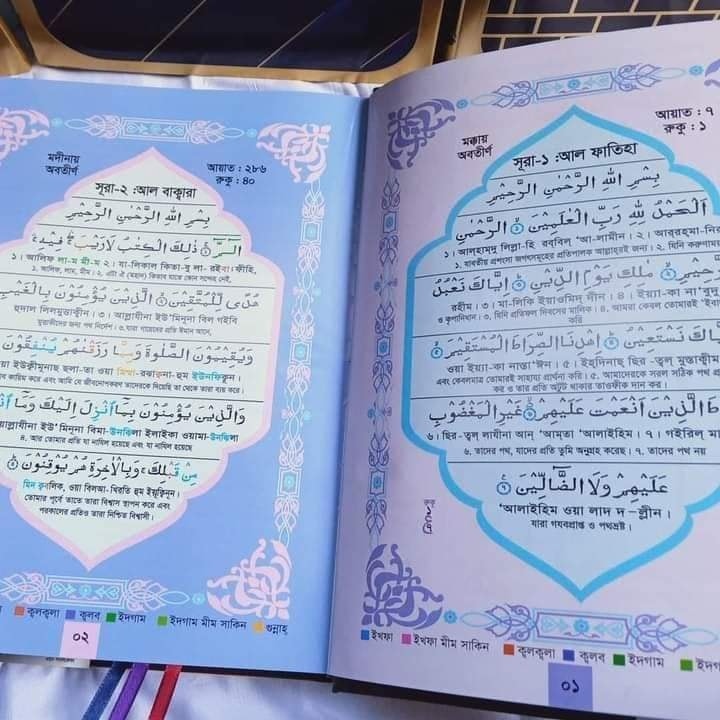 মক্কায়
অবতীর্ণ
আয়াত : ৭
রুকু : ১
সূরা-১ :আল ফাতিহা
بِسْمِ اللهِ الرَّحْمٰنِ الرَّحِيْمِ
اَلْحَمْدُ لِلّٰهِ رَبِّ الْعٰلَمِيْنَ ۝ الرَّحْمٰنِ
১। আলহামদু লিল্লা-হি রব্বিল্ 'আ-লামীন। ২। আররহমা-নির
১. যাবতীয় প্রশংসা জগৎসমূহের প্রতিপালক আল্লাহরই জন্য। ২. যিনি করুণাময়
الرَّحِيْمِ ۝ مٰلِكِ يَوْمِ الدِّيْنِ ۝ اِيَّاكَ نَعْبُدُ
রহীম। ৩। মা-লিকি ইয়াওমিদ্ দীন। ৪। ইয়্যা-কা না'বুদু
ও কৃপানিধান। ৩. যিনি প্রতিফল দিবসের মালিক। ৪. আমরা কেবল তোমারই
করি
وَاِيَّاكَ نَسْتَعِيْنُ ۝ اِهْدِنَا الصِّرَاطَ الْمُسْتَقِيْمَ ۝
ওয়া ইয়্যা-কা নাস্তা'ঈন। ৫। ইহ্‌দিনাছ্ ছির-তুল্ মুস্তাকীম
এবং কেবলমাত্র তোমারই সাহায্য প্রার্থনা করি। ৫. আমাদেরকে সরল সঠিক পথ
কর ও তার প্রতি অটুট থাকার তাওফীক দান কর
صِرَاطَ الَّذِيْنَ اَنْعَمْتَ عَلَيْهِمْ ۝ غَيْرِ الْمَغْضُوْبِ
৬। ছির-তুল্ লাযীনা আন্ 'আম্‌তা 'আলাইহিম। ৭। গইরিল্
৬. তাদের পথ, যাদের প্রতি তুমি অনুগ্রহ করেছ। ৭. তাদের পথ নয়
عَلَيْهِمْ وَلَا الضَّآلِّيْنَ ۝
'আলাইহিম ওয়া লাদ্ দ-ল্লীন।
যারা গযবপ্রাপ্ত ও পথভ্রষ্ট।
রুকু
ইখফা ইখফা মীম সাকিন কুলকুলা কুলব ইদগাম
০১
মদীনায়
অবতীর্ণ
আয়াত : ২৮৬
রুকু : ৪০
সূরা-২ :আল বাক্বারা
بِسْمِ اللهِ الرَّحْمٰنِ الرَّحِيْمِ
الٓمّٓ ۝ ذٰلِكَ الْكِتٰبُ لَا رَيْبَ ۛ فِيْهِ ۛ
১। আলিফ লা-ম মী-ম ২। যা-লিকাল কিতা-বু লা- রইবা। ফীহি,
১. আলিফ, লাম, মীম। ২. এটা ঐ (মহান) কিতাব যাতে কোন সন্দেহ নেই,
هُدًى لِّلْمُتَّقِيْنَ ۝ الَّذِيْنَ يُؤْمِنُوْنَ بِالْغَيْبِ
হুদাল লিলমুত্তাক্বীন। ৩। আল্লাযীনা ইউ'মিনূনা বিল গইবি
মুত্তাকীদের জন্য পথ নির্দেশ। ৩. যারা গায়েবের প্রতি ঈমান আনে,
وَيُقِيْمُوْنَ الصَّلٰوةَ وَمِمَّا رَزَقْنٰهُمْ يُنْفِقُوْنَ ۝
ইউক্বীমূনাছ্ ছলা-তা ওয়া মিম্মা-রঝাক্বনা-হুম ইউনফিকুন।
কায়িম করে এবং আমি যে জীবনোপকরণ তাদেরকে দিয়েছি তা থেকে তারা ব্যয় করে।
وَالَّذِيْنَ يُؤْمِنُوْنَ بِمَآ اُنْزِلَ اِلَيْكَ وَمَآ اُنْزِلَ
ইউ'মিনূনা বিমা-উনঝিলা ইলাইকা ওয়ামা-উনঝিলা
৪. আর তোমার প্রতি যা নাযিল হয়েছে এবং যা নাযিল হয়েছে
مِنْ قَبْلِكَ ۚ وَبِالْاٰخِرَةِ هُمْ يُوْقِنُوْنَ ۝
মিন ক্ববলিক, ওয়া বিলআ-খিরতি হুম ইয়ূক্বিনূন।
তোমার পূর্বে তাতে তারা বিশ্বাস স্থাপন করে এবং
পরকালের প্রতিও তারা নিশ্চিত বিশ্বাসী।
কুলকুলা কুলব ইদগাম ইদগাম মীম সাকিন গুন্নাহ্
০২